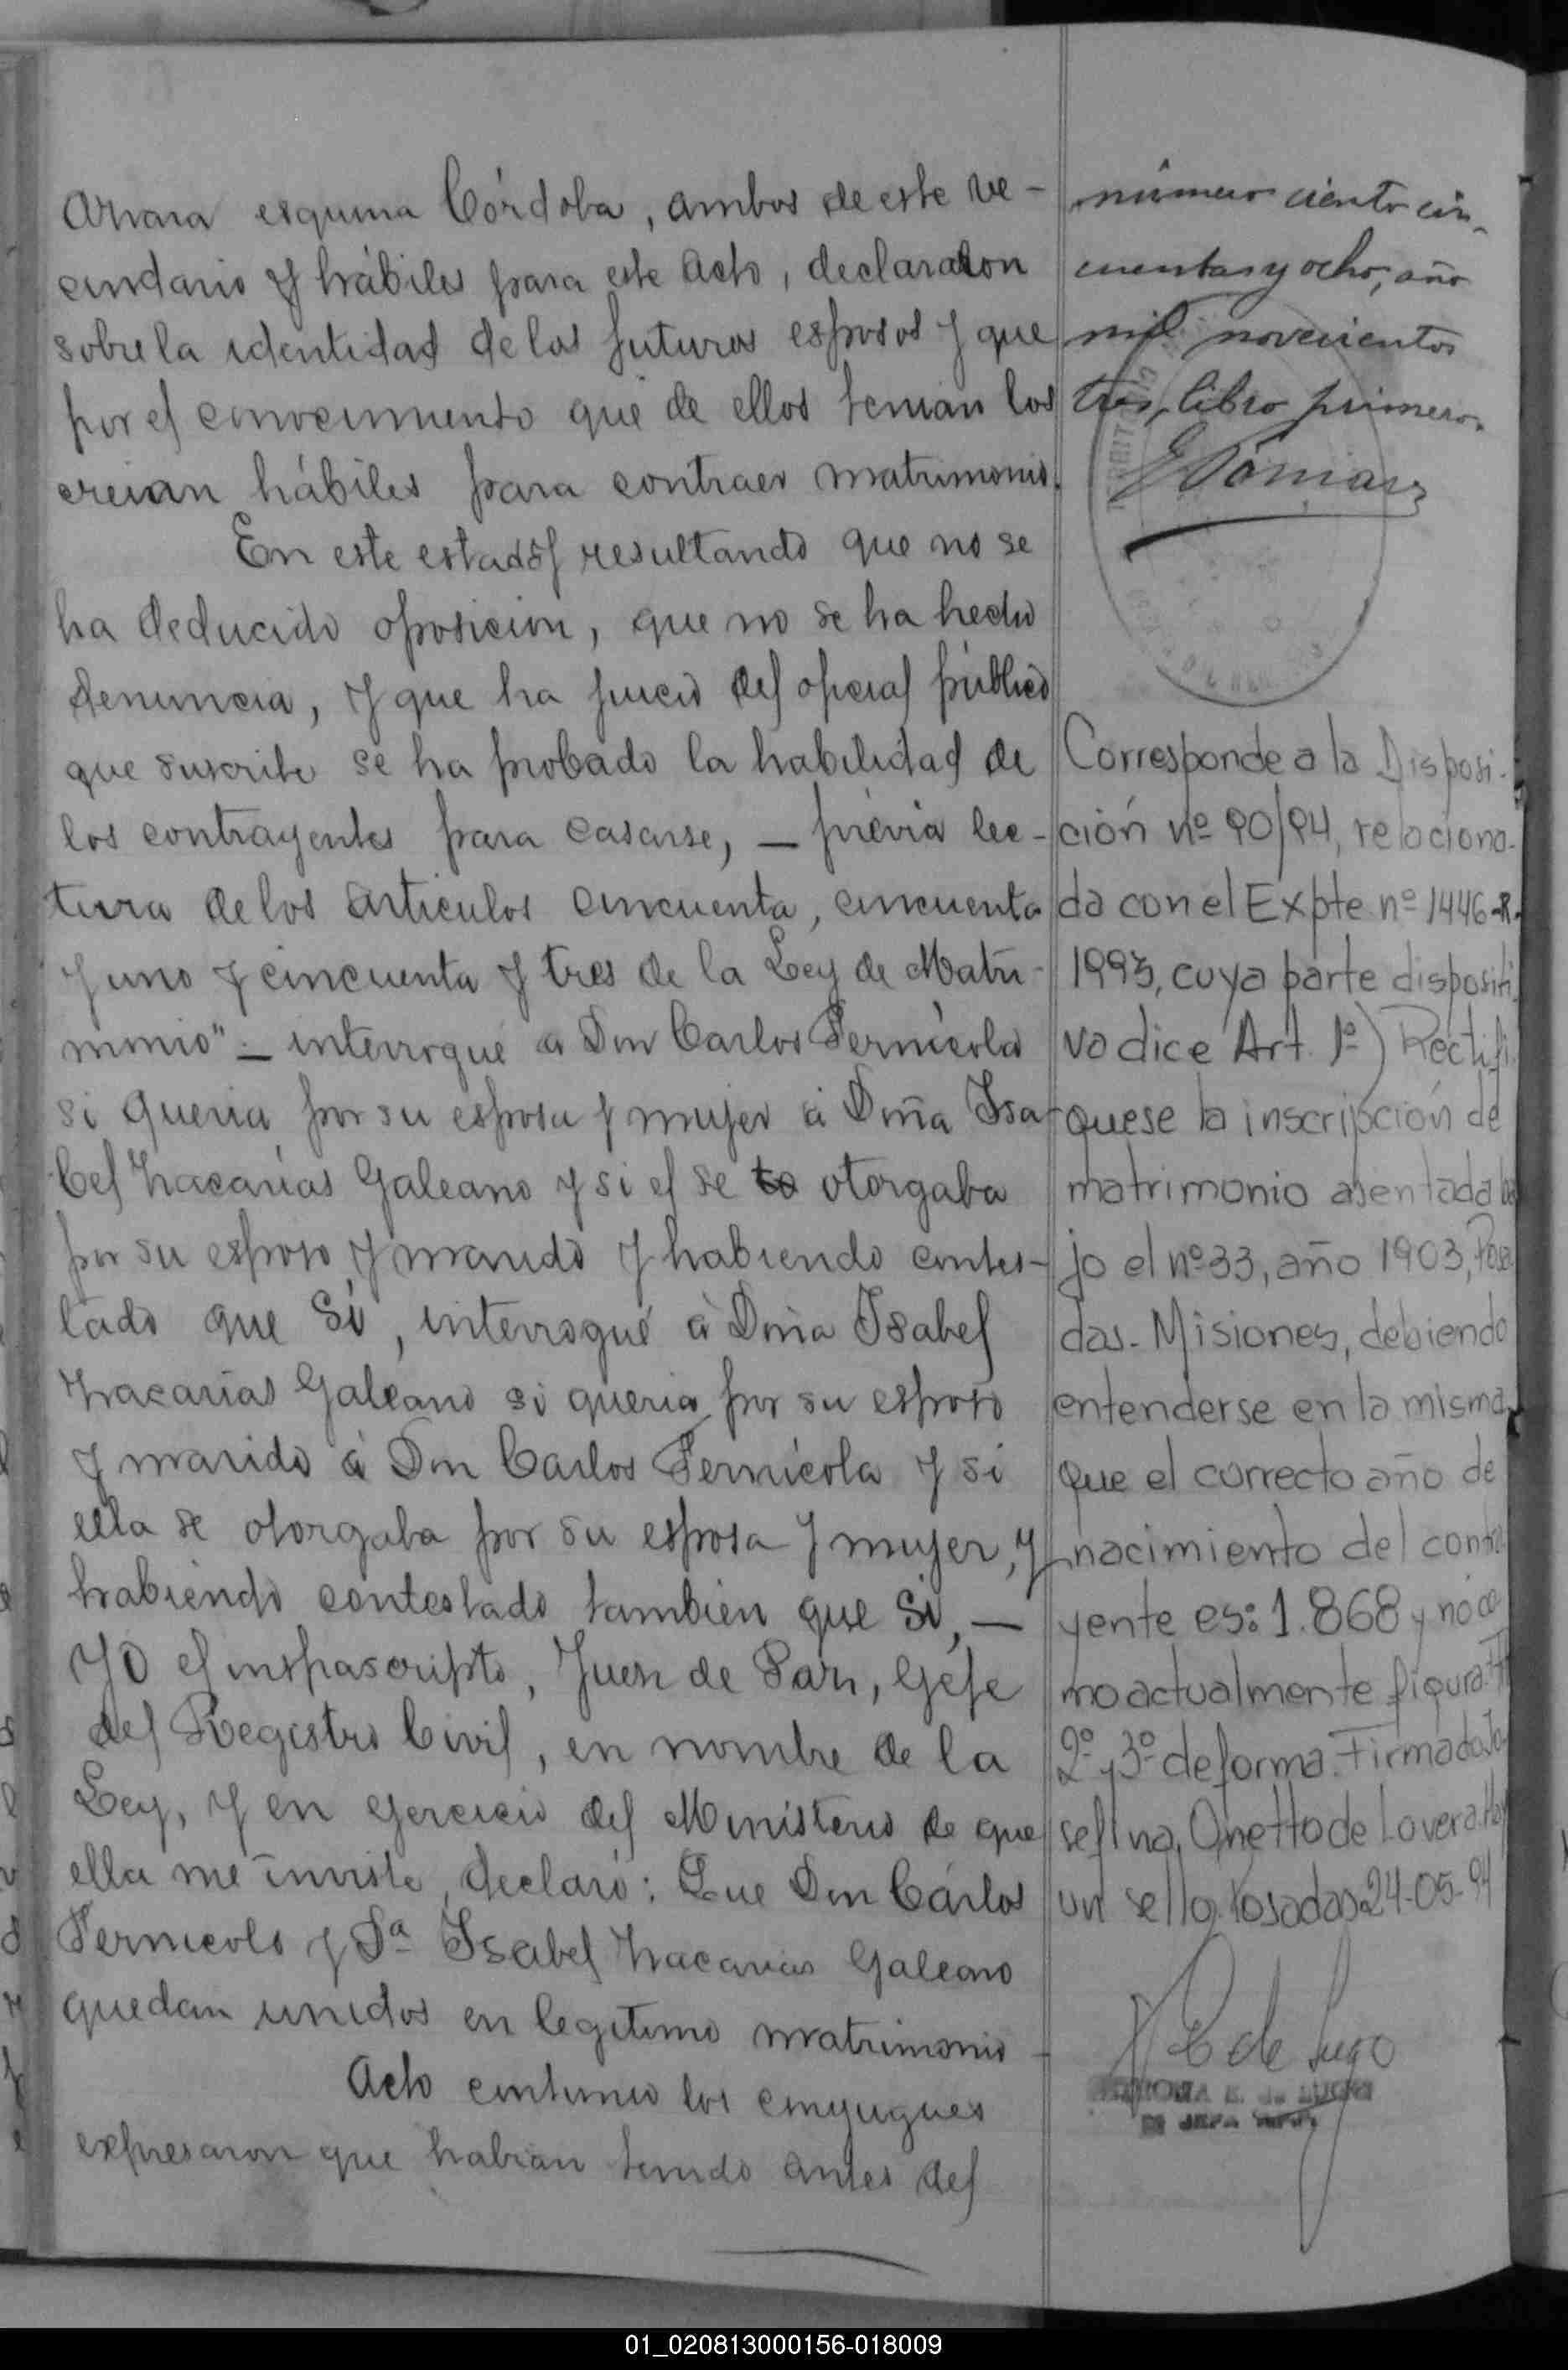 esquina Córdoba, ambos de este ve-
cindario y hábiles para este acto, declararon
sobre la identidad de los futuros esposos y que
por el conocimiento que de ellos tenian los
creian hábiles para contraer matrimonio.
En este estado y resultando que no se
ha deducido oposicion, que no se ha hecho
denuncia, y que ha juicio del oficial público
que suscribe se ha probado la habilidad de
los contrayentes para casarse, — prévia lec-
tura de los articulos cincuenta, cincuenta
y uno y cincuenta y tres de la Ley de Matri-
monio" — interrogué a Don Carlos Pernícola
si queria por su esposa y mujer á Doña Isa-
bel Zacarías Galeano y si el se otorgaba
por su esposo y marido y habiendo contes-
tado que Sí, interrogué á Doña Isabel
Zacarías Galeano si queria por su esposo
y marido á Don Carlos Pernícola y si
ella se otorgaba por su esposa y mujer, y
habiendo contestado tambien que Si, —
Yo el infrascripto, Juez de Paz, Gefe
del Registro Civil, en nombre de la
Ley, y en egercicio del Ministerio de que
ella me inviste, declaro: Que Don Cárlos
Pernicola y Dª Isabel Zacarias Galeano
quedan unidos en legitimo matrimonio -
Acto continuo los conyugues
expresaron que habian tenido antes del
número ciento cin-
cuenta y ocho, año
mil novecientos
tres, libro primero.
Corresponde a la Disposi-
ción nº 90/94, relaciona-
da con el Expte. nº 1446-R-
1993, cuya parte dispositi
va dice Art. 1º) Rectifi
quese la inscripción de
matrimonio asentada ba
jo el nº 33, año 1903, Posa
das - Misiones, debiendo
entenderse en la misma,
que el correcto año de
nacimiento del contra
yente es: 1.868 y no co
mo actualmente figura.
2º y 3º de forma. Firmado Jo
sefina Onetto de Lovera. Hay
un sello. Posadas 24-05-94
de Lugo
01_020813000156-018009